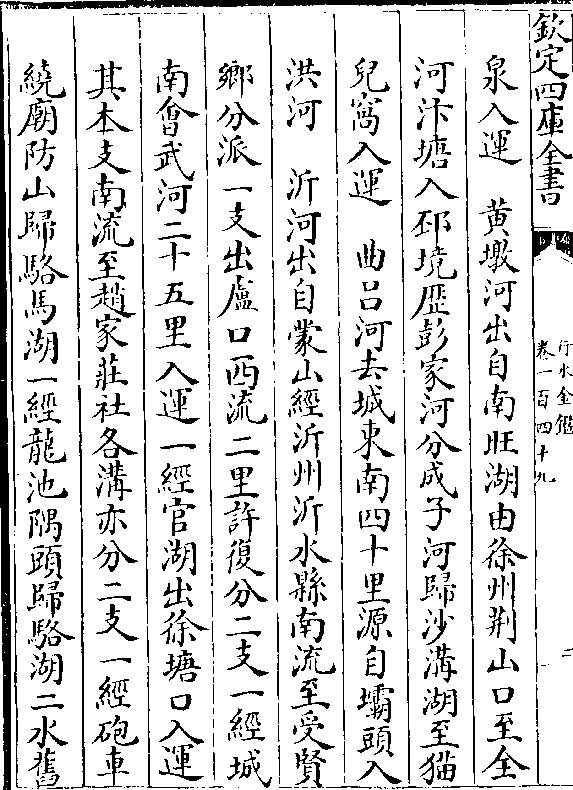 欽定四庫全書
行水金鑑
卷一百四十九
二
泉入運　黄墩河出自南旺湖由徐州荆山口至全
河汴塘入邳境歴彭家河分成子河歸沙溝湖至猫
兒窩入運　曲呂河去城東南四十里源自壩頭入
洪河　沂河出自蒙山經沂州沂水縣南流至受賢
鄉分派一支出廬口西流二里許復分二支一經城
南會武河二十五里入運一經官湖出徐塘口入運
其本支南流至趙家莊社各溝亦分二支一經砲車
繞廟防山歸駱馬湖一經龍池隅頭歸駱湖二水舊